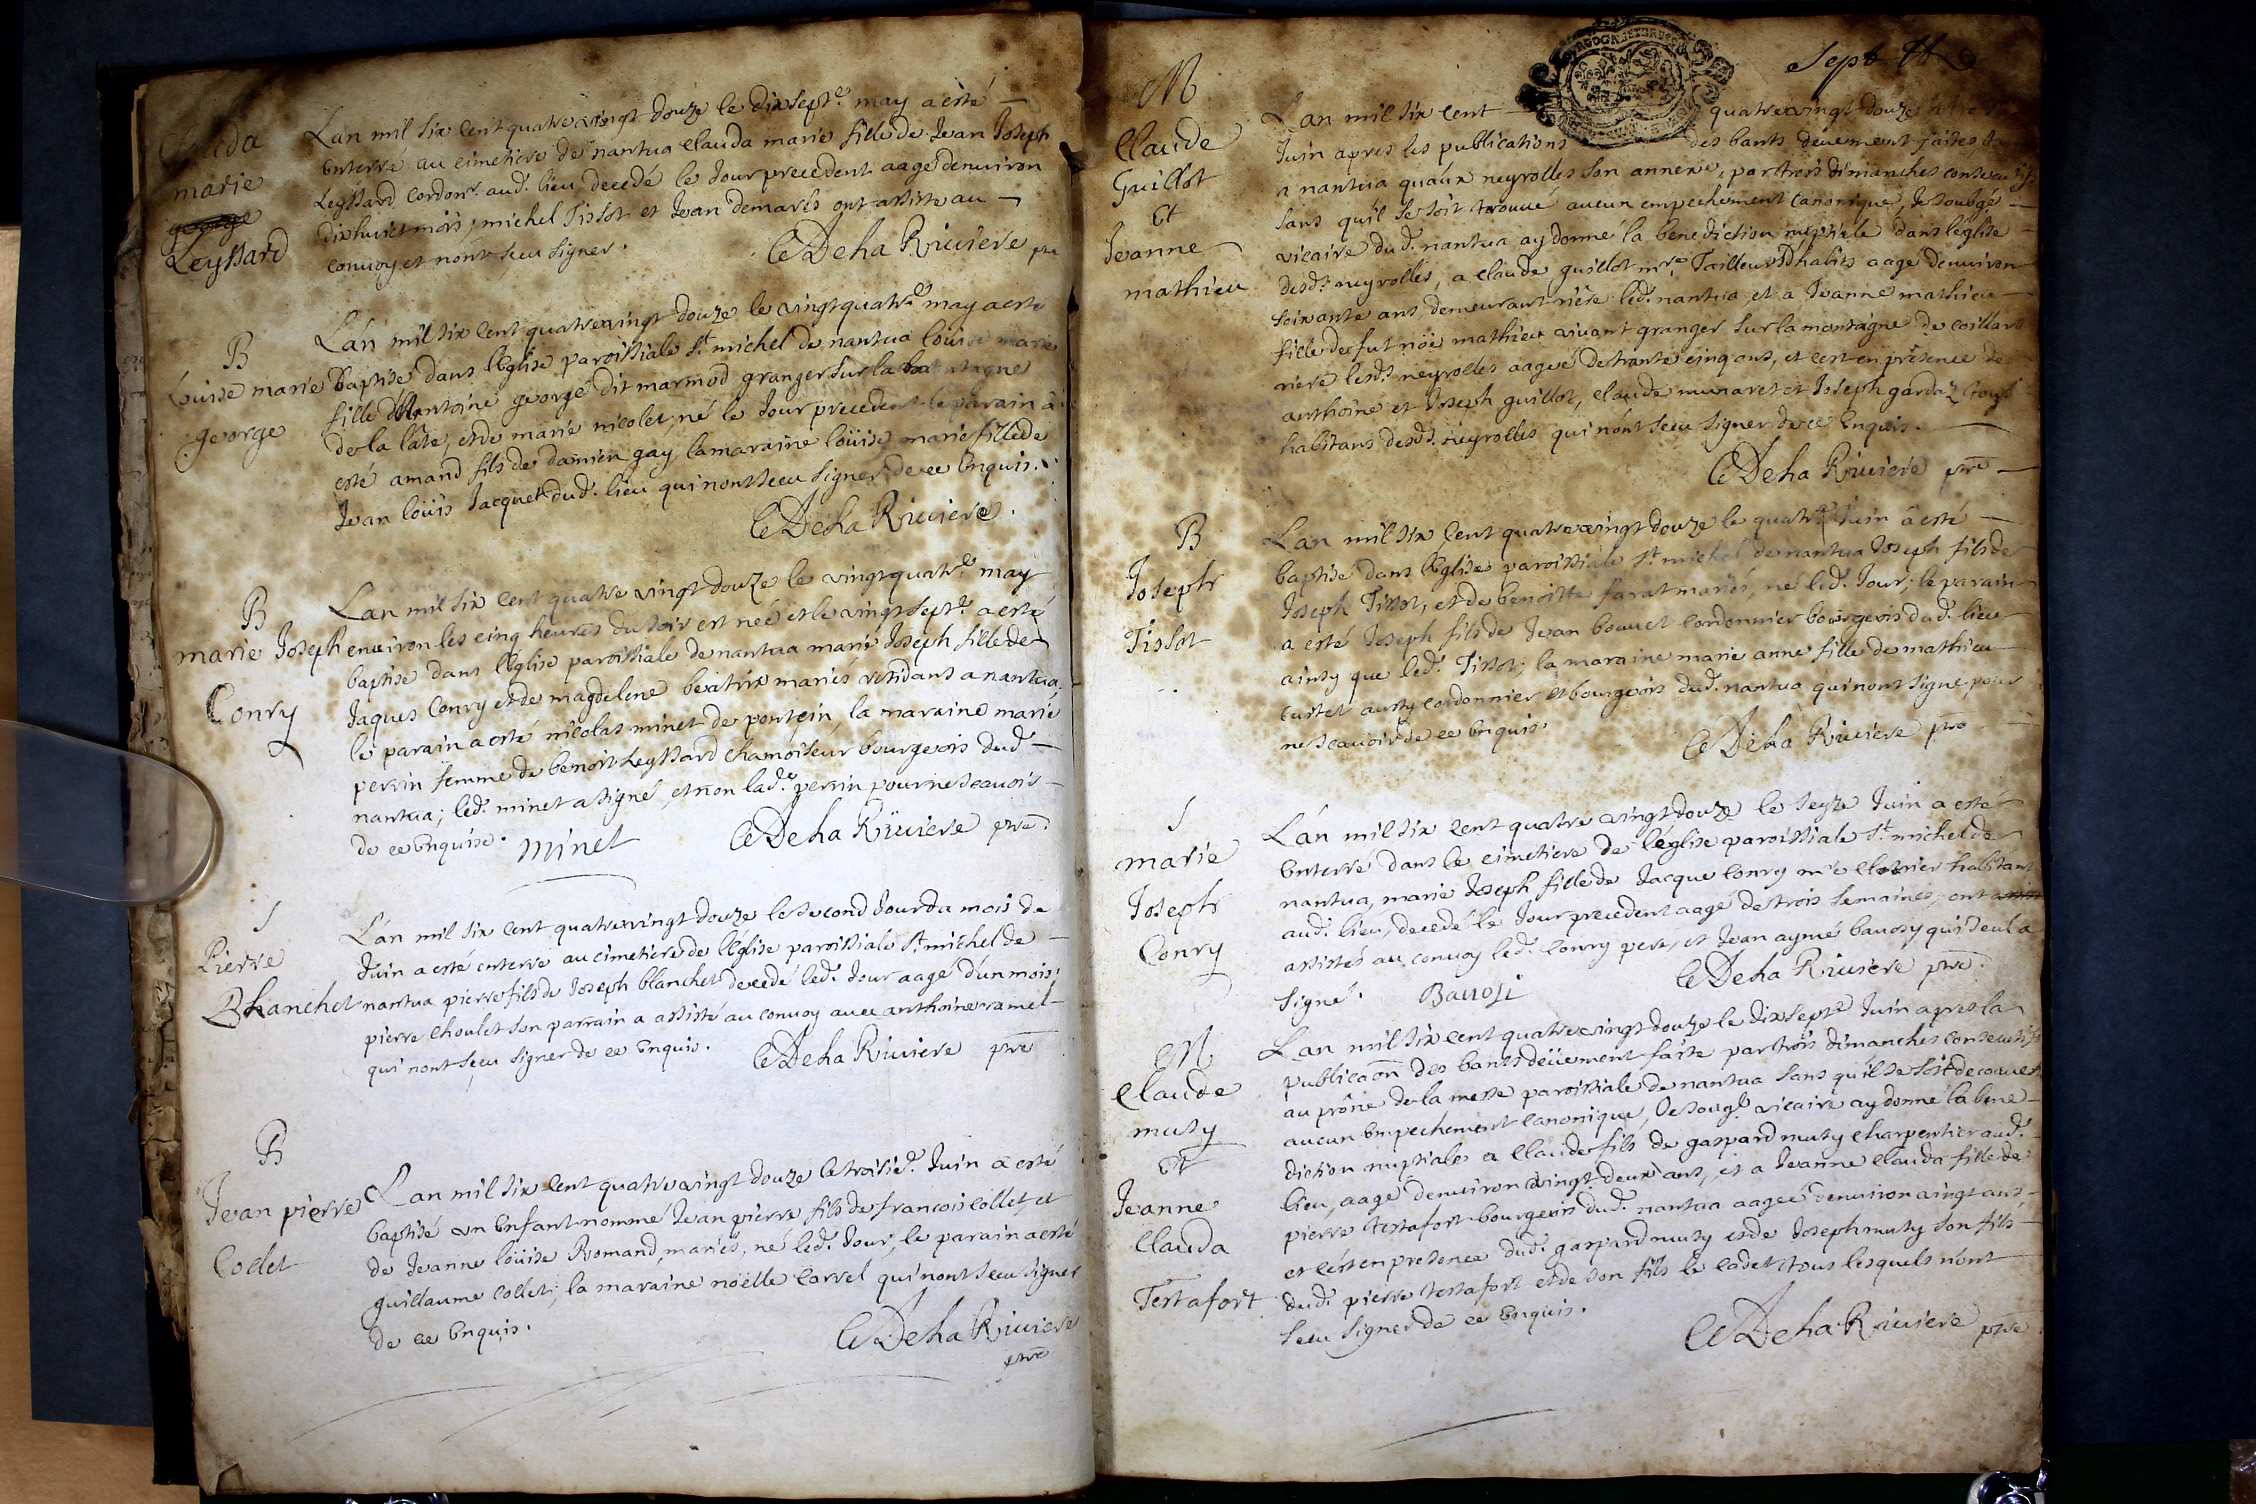 Clauda
marie
george
Leyssard
Lan mil six cent quatre vingt douze le dixsept.e may a esté
enterré au cimetiere de nantua clauda marie fille de Jean Joseph
Leyssard cordon.r aud. lieu, decedé le Jour precedent aagé denuiron
dixhuict mois; michel Tissot et Jean demarés ont assisté au
conuoy et n'ont sceu signer.
CDeha Riuiere pre
B
Louise marie
george
Lan mil six cent quatre vingt douze le vingtquatre may a esté
Baptisé dans l'Eglise paroissiale S.t michel de nantua Loüise marie
fille d'Antoiné george dit marmod granger sur la montagne
de la late, et de marie nicolet, né le Jour precedent le parain à
esté amand fils de damien gay, la maraine loüise marie fille de
Jean loüis Jacquet dud. lieu qui nont sceu signer de ce Enquis.
CDeha Riuiere.
B
marie Joseph
Conry
Lan mil six cent quatre vingt douze le vingtquatre may
enuiron les cinq heures du soir est neé et le vingtsept.e a esté
baptisé dans l'Eglise paroissiale de nantua marie Joseph fille de
Jaques Conry et de magdelene beatrix mariés residants a nantua,
le parain a esté nicolas minet de poncin, la maraine marie
perrin femme de benoit Leyssard chamoiseur bourgeois dud.
nantua; led. minet a signé, et non lad.e perrin pour ne scauoir
de ce Enquise. minet CDeha Riuiere pre.
S
Pierre
Blanchet
Lan mil six cent quatre vingt douze le second Jour du mois de
Juin a esté enterré au cimetiere de l'Eglise paroissiale S.t michel de
nantua pierre fils de Joseph blanchet decedé led. Jour aagé d'un mois;
pierre choulet son parrain a assisté au conuoy auec anthoine ramel
qui nont sceu signer de ce Enquis. CDeha Riuiere pre
B
Jean pierre
Collet
Lan mil six cent quatre vingt douze le troisie. Juin a esté
baptisé un Enfant nommé Jean pierre fils de francois collet, et
de Jeanne loüise Romand, mariés, né led. Jour, le parain a esté
guillaume collet; la maraine noëlle carrel qui nont sceu signer
de ce Enquis. CDeha Riuiere
pre
Sept
M
Claude
Guillot
Et
Jeanne
mathieu
Lan mil six cent quatre vingt douze le
Juin apres les publications des bants deuement faites
a nantua qu'aux neyrolles son annexe, par trois dimanches consecutifs
sans quil se soit trouué aucun empechement canonique, Je soubsgé
vicaire dud. nantua ay donné la benediction nuptiale dans léglise
desd. neyrolles, a claude guillot m.re Tailleur d'habits aagé denuiron
soixante ans demeurant riére led. nantua et a Jeanne mathieu
fille de fut noë mathieu viuant granger sur la montagne de coillard
riere lesd. neyrolles aageé de trante cinq ans, et cest en présence de
anthoine et Joseph guillot, claude munaret et Joseph gardaz tous
habitans desd. neyrolles qui nónt sceu signer de ce Enquis.
CDeha Riuiere pre
B
Joseph
Tissot
Lan mil six cent quatre vingt douze le quatre Juin a esté
baptisé dans l'Eglise paroissiale S.t michel de nantua Joseph fils de
Joseph Tissot, et de benoitte farat mariés, né led. Jour; le parain
a esté Joseph fils de Jean bouuet cordonnier bourgeois dud. lieu
ainsy que led. Tissot; la maraine marie anne fille de mathieu
curtet aussy cordonnier et bourgeois dud. nantua, qui nont signé pour
ne scauoir de ce Enquis. CDeha Riuiere pre
S
marie
Joseph
Conry
Lan mil six cent quatre vingt douze le seyze Juin a esté
Enterré dans le cimetiere de l'église paroissiale S.t michel de
nantua, marie Joseph fille de Jacque Conry m.e clotrier habitant
aud. lieu, decedé le Jour precedent aagé de trois semaines, ont
assistés au conuoy led. conry pere, et Jean aymé bauosy qui seul a
signé. Bauosi CDeha Riuiere pre.
M
Claude
musy
Et
Jeanne
Clauda
Tertafort
Lan mil six cent quatre vingt douze le dixsept.e Juin apres la
publicaõn des bants deüement faite par trois dimanches consecutifs
au prône de la messe paroissiale de nantua sans qu'il se soit decouuert
aucun empechement canonique, Je sougé vicaire ay donné la bene-
diction nuptiale a claude fils de gaspard musy charpentier aud.
lieu, aagé denuiron vingt deux ans, et a Jeanne clauda fille de
pierre tertafort bourgeois dud. nantua aageé denuiron vingt ans
et cést en présence dud. gaspard musy et de Joseph musy son fils
dud. pierre tertafort et de son fils le cadet, tous lesquels n'ont
sceu signer de ce Enquis. CDeha Riuiere pre